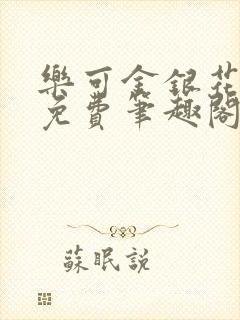 樂可金銀花
免費筆趣閣
蘇眠説